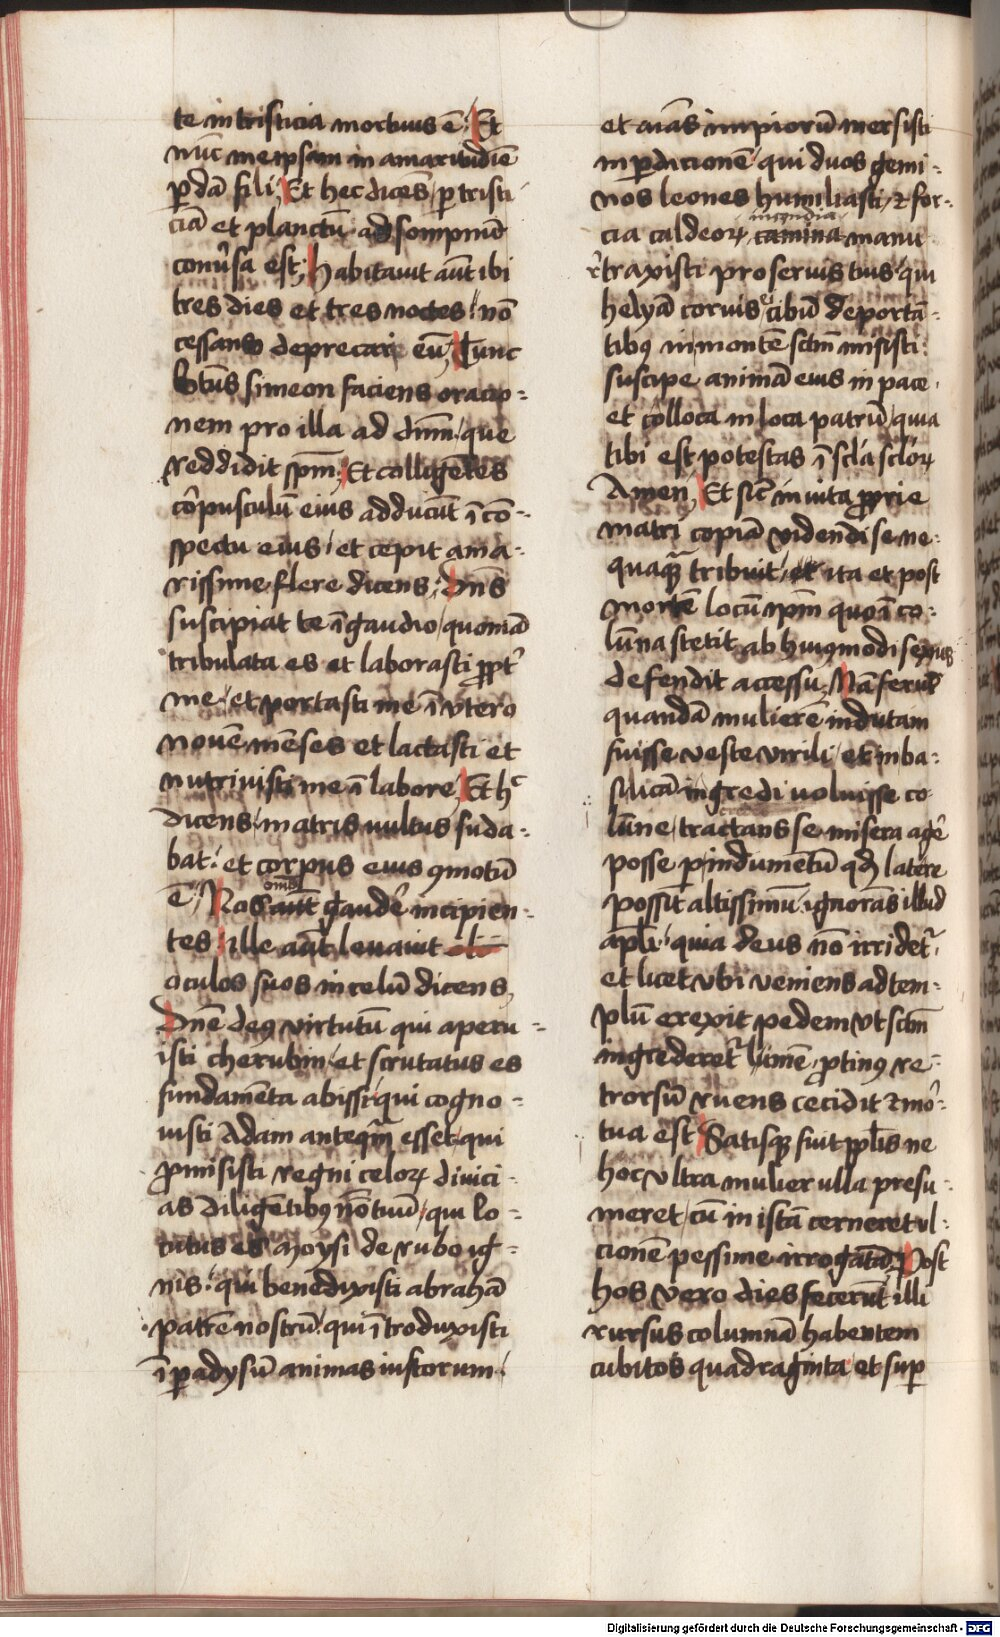 te in tristicia mortuus ē· Et
nūc meipsam in amaritudīe
ꝑdā fili Et hec dicēs ꝑ tristi
ciā et planctū ad sompnū
cōnūsa est· Habitauit aūt ibi
tres dies et tres noctes nō
cessans deprecari eū Tunc
btūs simeon faciens oracio-
nem pro illa ad dnm̄ que
reddidit spm̄· Et colligētes
cōrpusculū eius adducūt ī cō-
spectu eius et cepit ama-
rissime flere dicens· Dn̄s
suscipiat te ī gaudio quoniā
tribulata es et laborasti ꝓpt̄
me et portasti me ī vtero
nouē mēses et lactasti et
nutriuisti me ī labore Et hͨ
dicens matris uultus suda-
bat· et corpus eius ꝯmotū
ē Nos aūt oms̄ gaudē incipien-
tes ille aūt leuauit
oculos suos in celū dicens
Dn̄e deꝰ virtutū qui aperu-
isti cherubin et scrutatus es
fundamēta abissi qui cogno-
uisti Adam anteqm̄ esset qui
ꝓmisisti regni celoꝝ diuici-
as diligētibꝰ nōē tuū qui lo-
cutus es moysi de rubo ig-
nis· qui benedixisti abrahā
patrē nostrū qui ītroduxisti
ī ꝑadysū animas iustorum
et aīas impiorū mersisti
in ꝑdicionē qui duos gemi-
nos leones humiliasti ⁊ for-
incendia
cia caldeoꝝ camina manu
r̄traxisti pro seruis tuis qui
helyā coruis ei cibū deportā-
tibꝰ in montē sctm̄ misisti
suscipe animā eius in pace
et colloca in loca patrū quia
tibi est potestas ī scl̄a scl̄oꝝ
Amen Et sic̄ in uita ꝓprie
matri copiā videndi se ne-
quaqꝫ tribuit et ita et post
mortē locū ipm̄ quo ī co-
lūna stetit ab huiꝰmodi sexus
defendit accessu Nā ferūt
quandā mulierē indutam
fuisse veste virili et in ba-
silicā ingredi uoluisse co
lūne tractans se misera agē
posse ꝑ indumētū qd̄ latere
possit altissimū ignorās illud
apl̄i quia deus nō irridet͛
et licet vbi veniens ad tem-
plū erexit pedem vt sctm̄
ingrederet͛ limē ꝓtinꝰ re-
trorsū ruens cecidit ⁊ mo᷑-
tua est Satisqꝫ fuit ppl̄is ne
hoc vltra mulier ulla presu-
meret cū in istā cerneret vl-
cionē pessime irrogatā Post
hos vero dies fecerūt illi
rursus columnā habentem
cubitos quadraginta et suꝑ
Digitalisierung gefördert durch die Deutsche Forschungsgemeinschaft - DFG